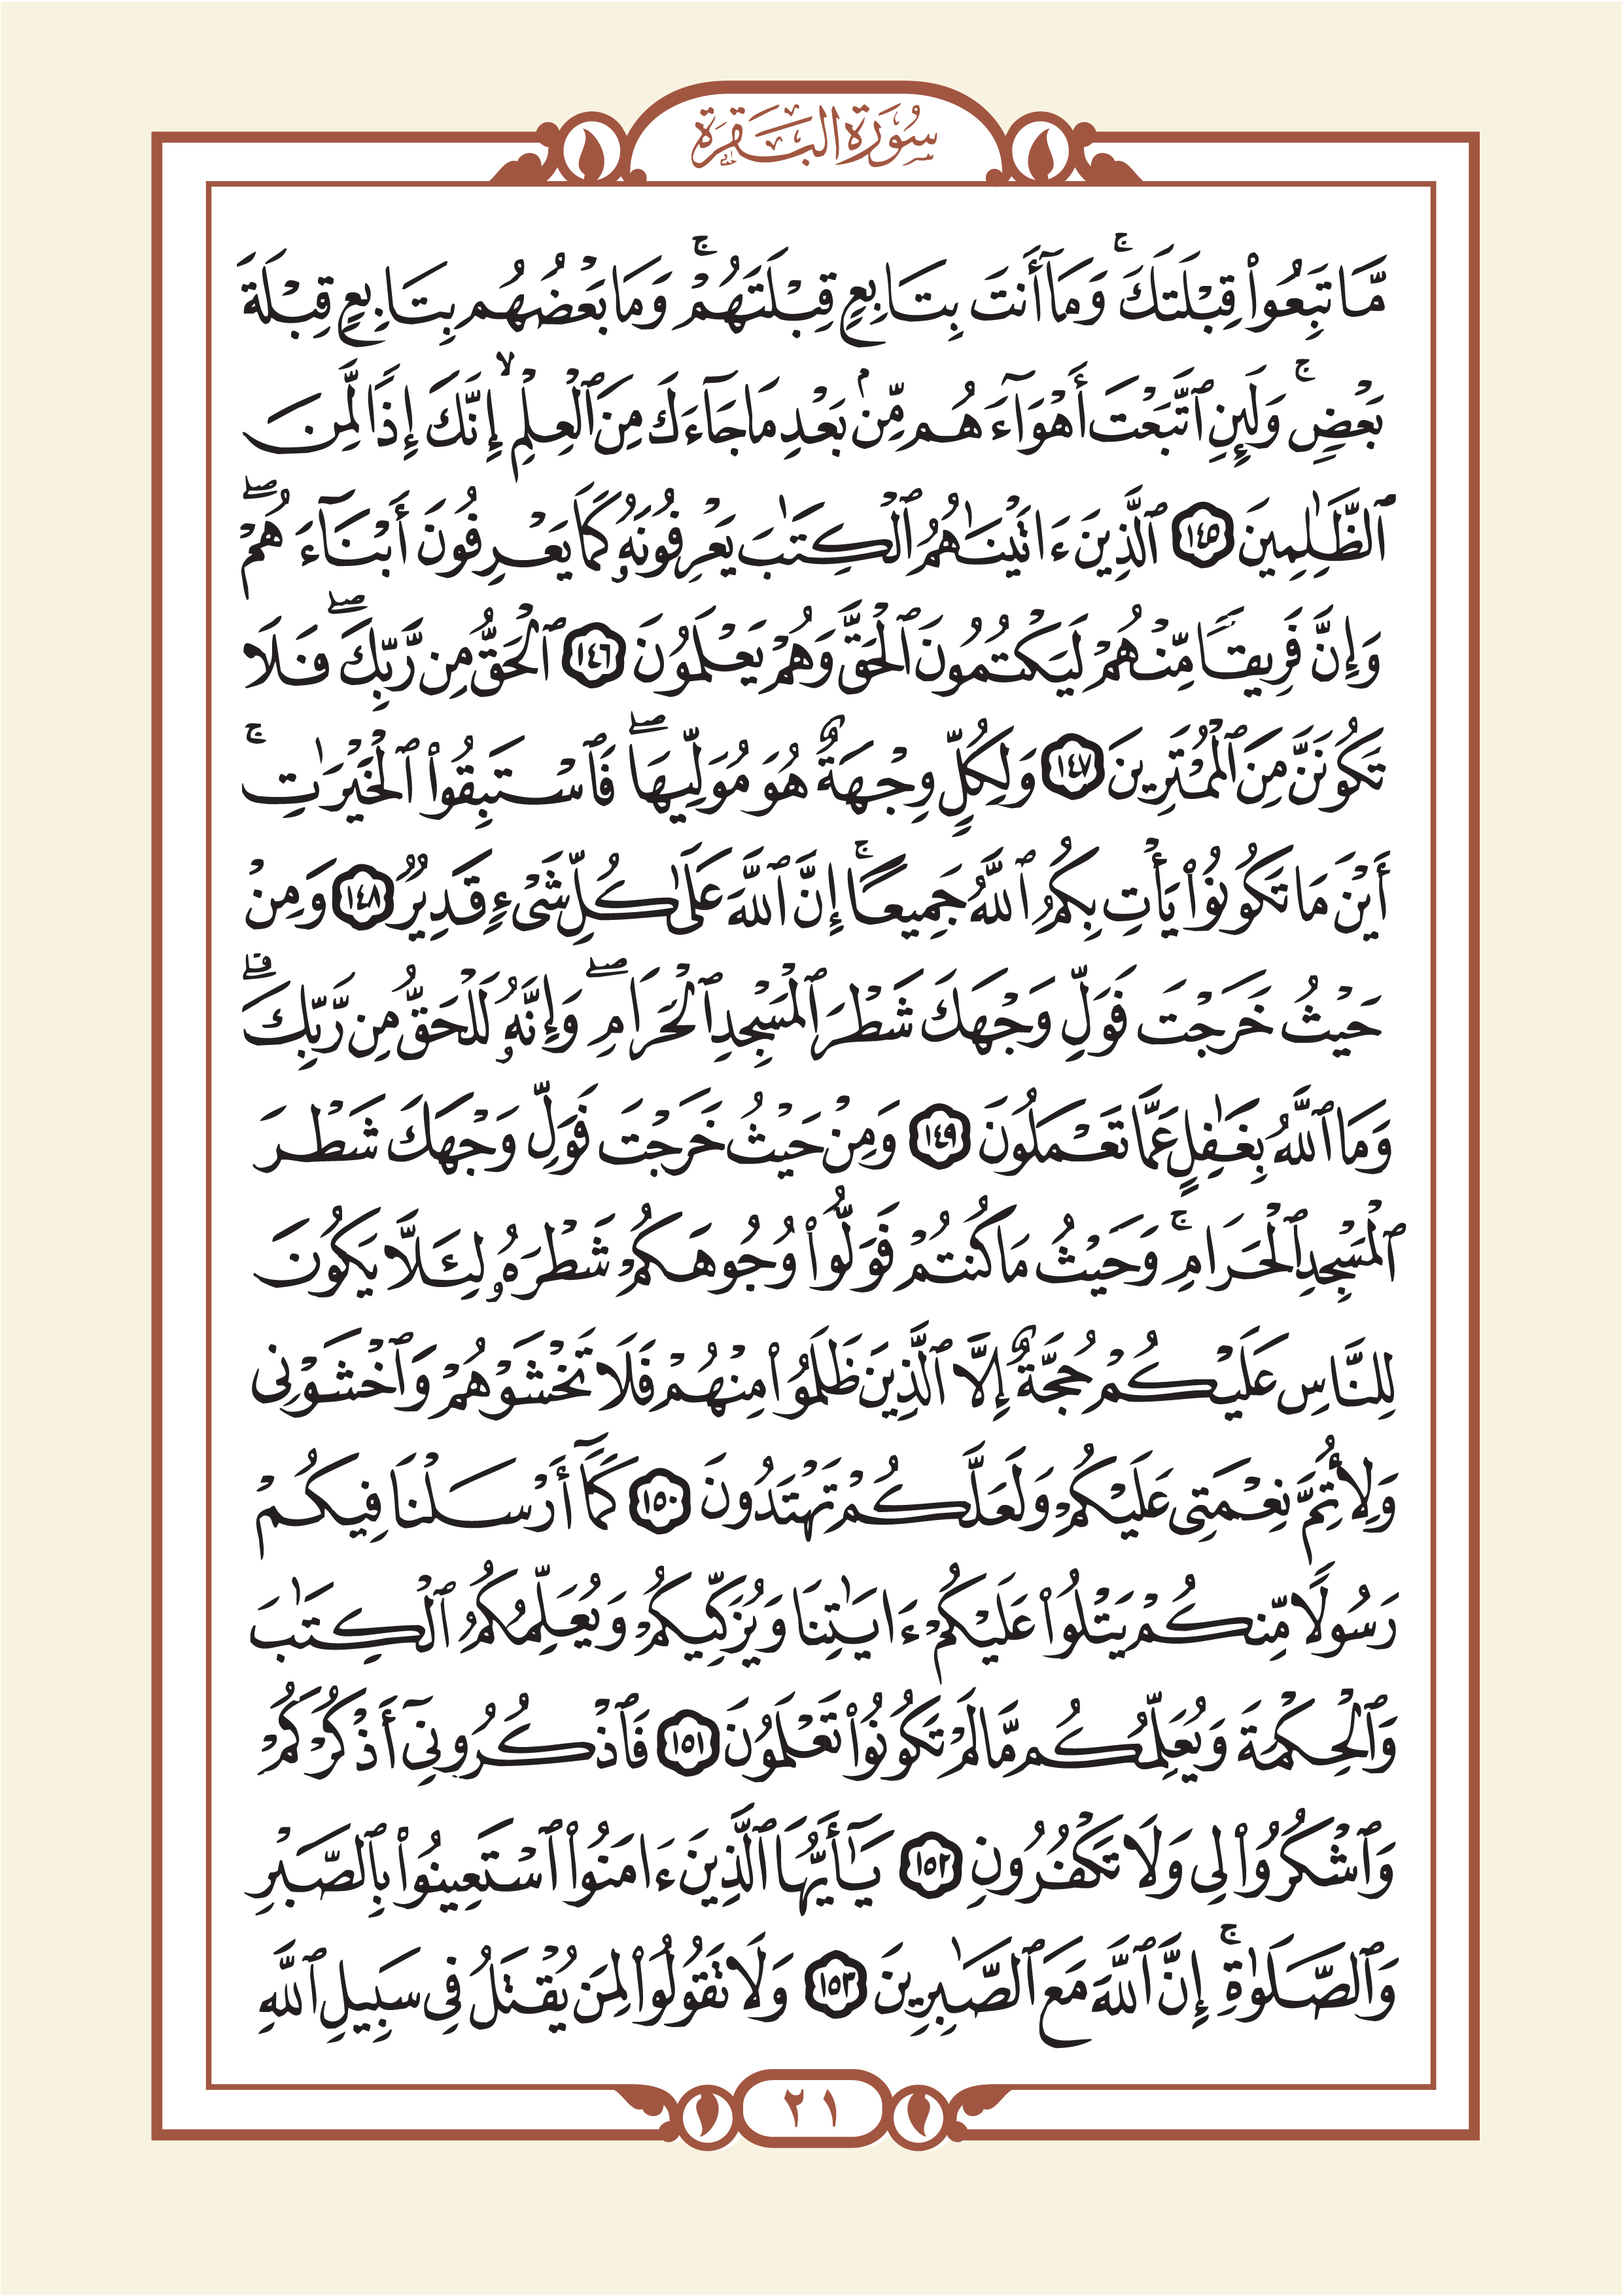 سُورَةُ البَقَرَةِ
مَّا تَبِعُوا۟ قِبْلَتَكَ ۚ وَمَآ أَنتَ بِتَابِعٍ قِبْلَتَهُمْ ۚ وَمَا بَعْضُهُم بِتَابِعٍ قِبْلَةَ
بَعْضٍ ۚ وَلَئِنِ ٱتَّبَعْتَ أَهْوَآءَهُم مِّنۢ بَعْدِ مَا جَآءَكَ مِنَ ٱلْعِلْمِ ۙ إِنَّكَ إِذًا لَّمِنَ
ٱلظَّٰلِمِينَ ١٤٥ ٱلَّذِينَ ءَاتَيْنَٰهُمُ ٱلْكِتَٰبَ يَعْرِفُونَهُۥ كَمَا يَعْرِفُونَ أَبْنَآءَهُمْ ۖ
وَإِنَّ فَرِيقًا مِّنْهُمْ لَيَكْتُمُونَ ٱلْحَقَّ وَهُمْ يَعْلَمُونَ ١٤٦ ٱلْحَقُّ مِن رَّبِّكَ ۖ فَلَا
تَكُونَنَّ مِنَ ٱلْمُمْتَرِينَ ١٤٧ وَلِكُلٍّ وِجْهَةٌ هُوَ مُوَلِّيهَا ۖ فَٱسْتَبِقُوا۟ ٱلْخَيْرَٰتِ ۚ
أَيْنَ مَا تَكُونُوا۟ يَأْتِ بِكُمُ ٱللَّهُ جَمِيعًا ۚ إِنَّ ٱللَّهَ عَلَىٰ كُلِّ شَىْءٍ قَدِيرٌ ١٤٨ وَمِنْ
حَيْثُ خَرَجْتَ فَوَلِّ وَجْهَكَ شَطْرَ ٱلْمَسْجِدِ ٱلْحَرَامِ ۖ وَإِنَّهُۥ لَلْحَقُّ مِن رَّبِّكَ ۗ
وَمَا ٱللَّهُ بِغَٰفِلٍ عَمَّا تَعْمَلُونَ ١٤٩ وَمِنْ حَيْثُ خَرَجْتَ فَوَلِّ وَجْهَكَ شَطْرَ
ٱلْمَسْجِدِ ٱلْحَرَامِ ۚ وَحَيْثُ مَا كُنتُمْ فَوَلُّوا۟ وُجُوهَكُمْ شَطْرَهُۥ لِئَلَّا يَكُونَ
لِلنَّاسِ عَلَيْكُمْ حُجَّةٌ إِلَّا ٱلَّذِينَ ظَلَمُوا۟ مِنْهُمْ فَلَا تَخْشَوْهُمْ وَٱخْشَوْنِى
وَلِأُتِمَّ نِعْمَتِى عَلَيْكُمْ وَلَعَلَّكُمْ تَهْتَدُونَ ١٥٠ كَمَآ أَرْسَلْنَا فِيكُمْ
رَسُولًا مِّنكُمْ يَتْلُوا۟ عَلَيْكُمْ ءَايَٰتِنَا وَيُزَكِّيكُمْ وَيُعَلِّمُكُمُ ٱلْكِتَٰبَ
وَٱلْحِكْمَةَ وَيُعَلِّمُكُم مَّا لَمْ تَكُونُوا۟ تَعْلَمُونَ ١٥١ فَٱذْكُرُونِىٓ أَذْكُرْكُمْ
وَٱشْكُرُوا۟ لِى وَلَا تَكْفُرُونِ ١٥٢ يَٰٓأَيُّهَا ٱلَّذِينَ ءَامَنُوا۟ ٱسْتَعِينُوا۟ بِٱلصَّبْرِ
وَٱلصَّلَوٰةِ ۚ إِنَّ ٱللَّهَ مَعَ ٱلصَّٰبِرِينَ ١٥٣ وَلَا تَقُولُوا۟ لِمَن يُقْتَلُ فِى سَبِيلِ ٱللَّهِ
٢١